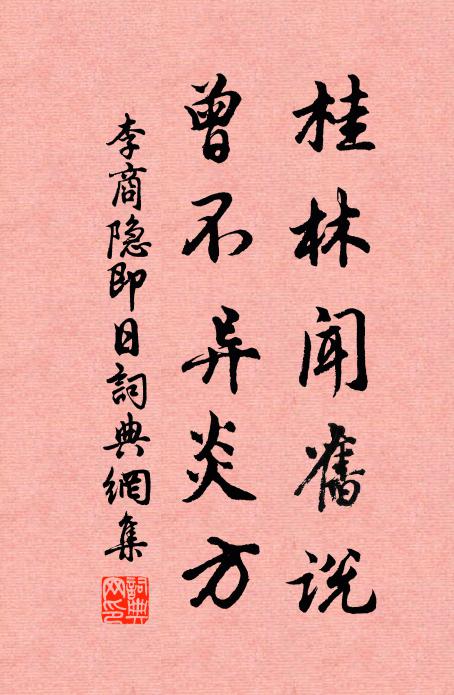 桂林闻舊说
曾不异炎方
李商隐即日詞典網集
詞典网印